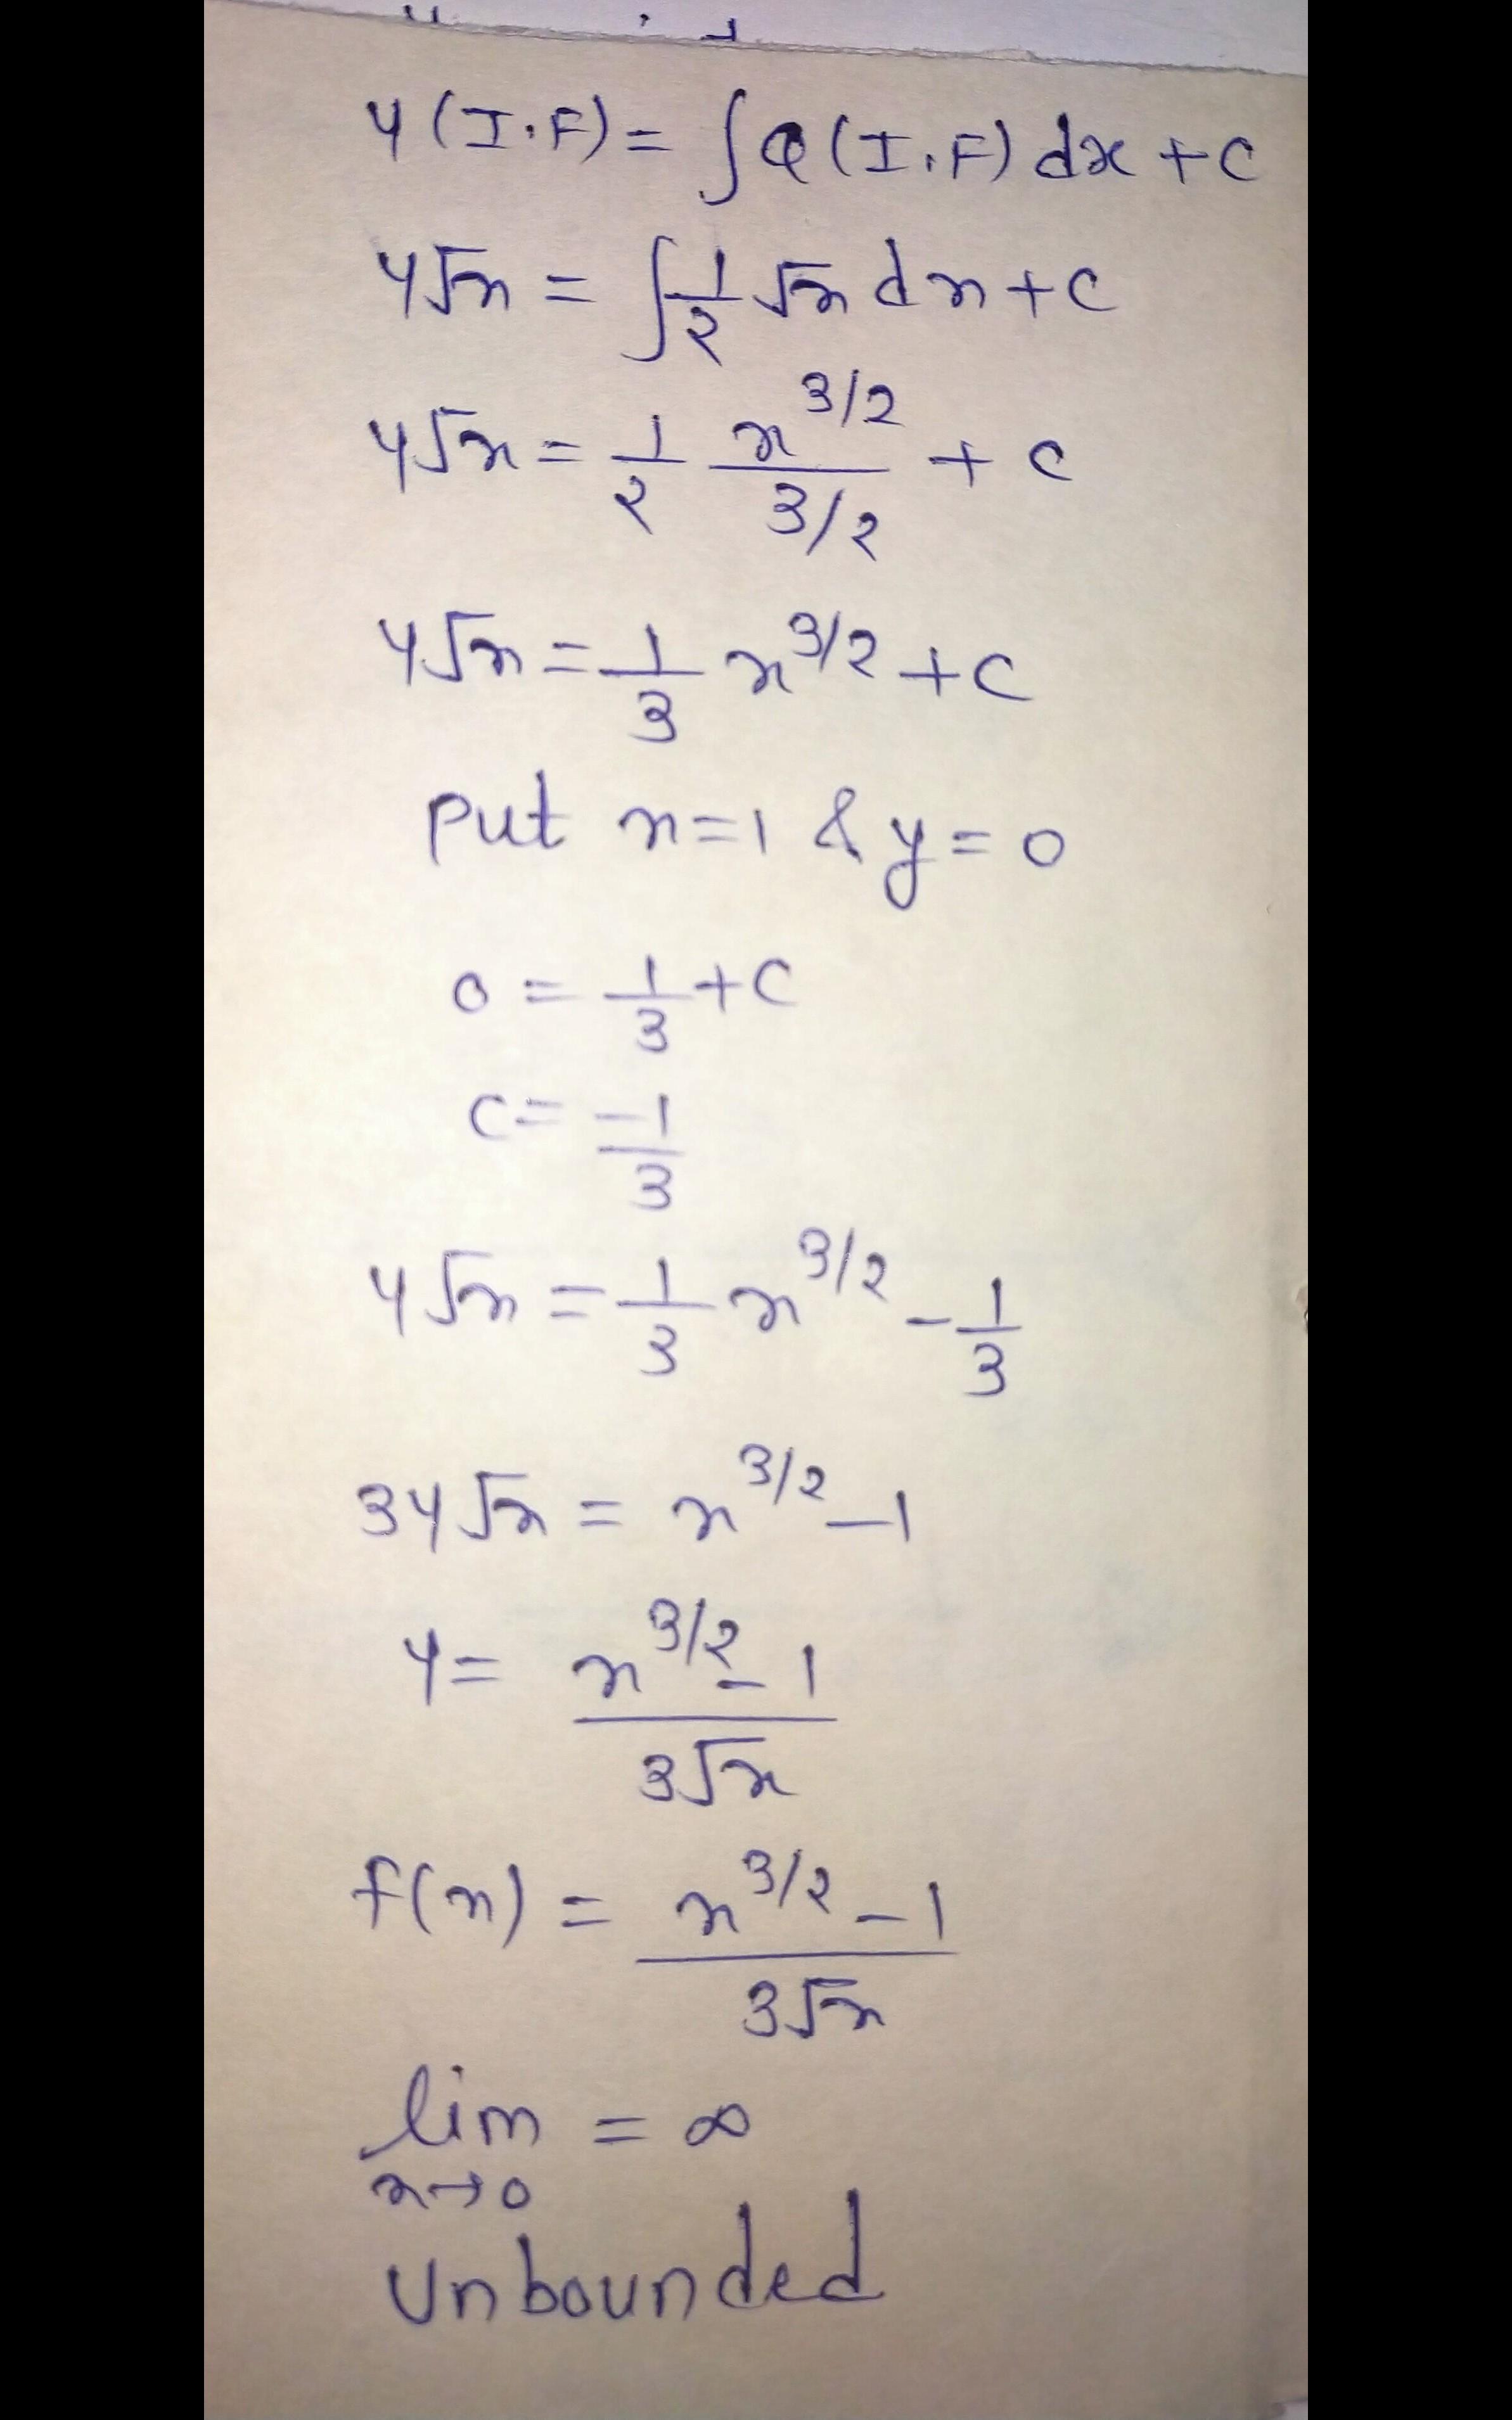 y(I.F) = ∫Q(I.F) dx + c
y√x = ∫1/2 √x dx + c
y√x = 1/2 x^3/2 / 3/2 + c
y√x = 1/3 x^3/2 + c
put x=1 & y=0
0 = 1/3 + c
c = -1/3
y√x = 1/3 x^3/2 - 1/3
3y√x = x^3/2 - 1
y = x^3/2 - 1 / 3√x
f(x) = x^3/2 - 1 / 3√x
lim x→0 = ∞
Unbounded